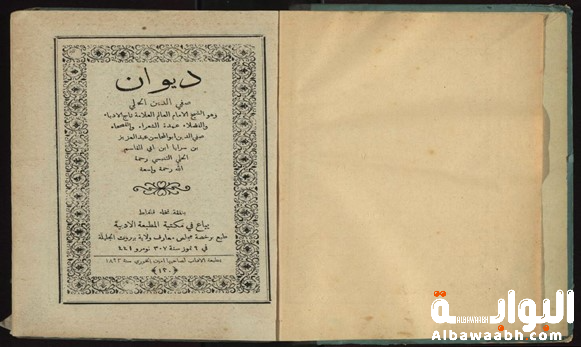 ديوان
صفي الدين الحلي
وهو الشيخ الامام العالم العلامة تاج الادباء
والفضلاء عمدة الشعراء والفصحاء
صفي الدين ابو المحاسن عبد العزيز
بن سرايا ابن ابي القاسم
الحلي التنبسي رحمه
الله رحمة واسعة
بنفقة نخله قلفاط
يباع في مكتبة المطبعة الادبية
طبع برخصة مجلس معارف ولاية بيروت الجليلة
في ٦ تموز سنة ٣٠٧ نومرو ٤٤٦
بمطبعة الآداب لصاحبها امين الخوري سنة ١٨٩٢
البوابة
ALBAWAABH
Albawaabh.com